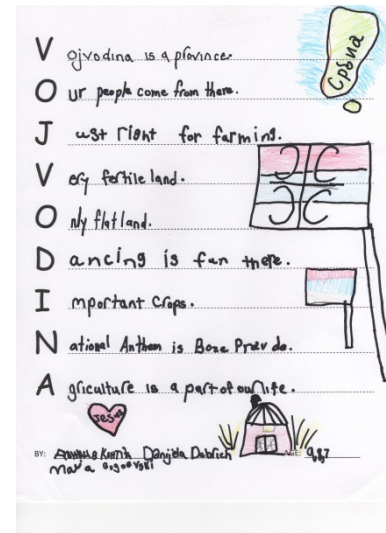 Србиа
Vojvodina is a province.
Our people come from there.
Just right for farming.
Very fertile land.
Only flat land.
Dancing is fun there.
Important crops.
National Anthem is Boze Pravde.
Agriculture is a part of our life.
Jesus
BY: Danijela Dobrich AGE: 9,8,7